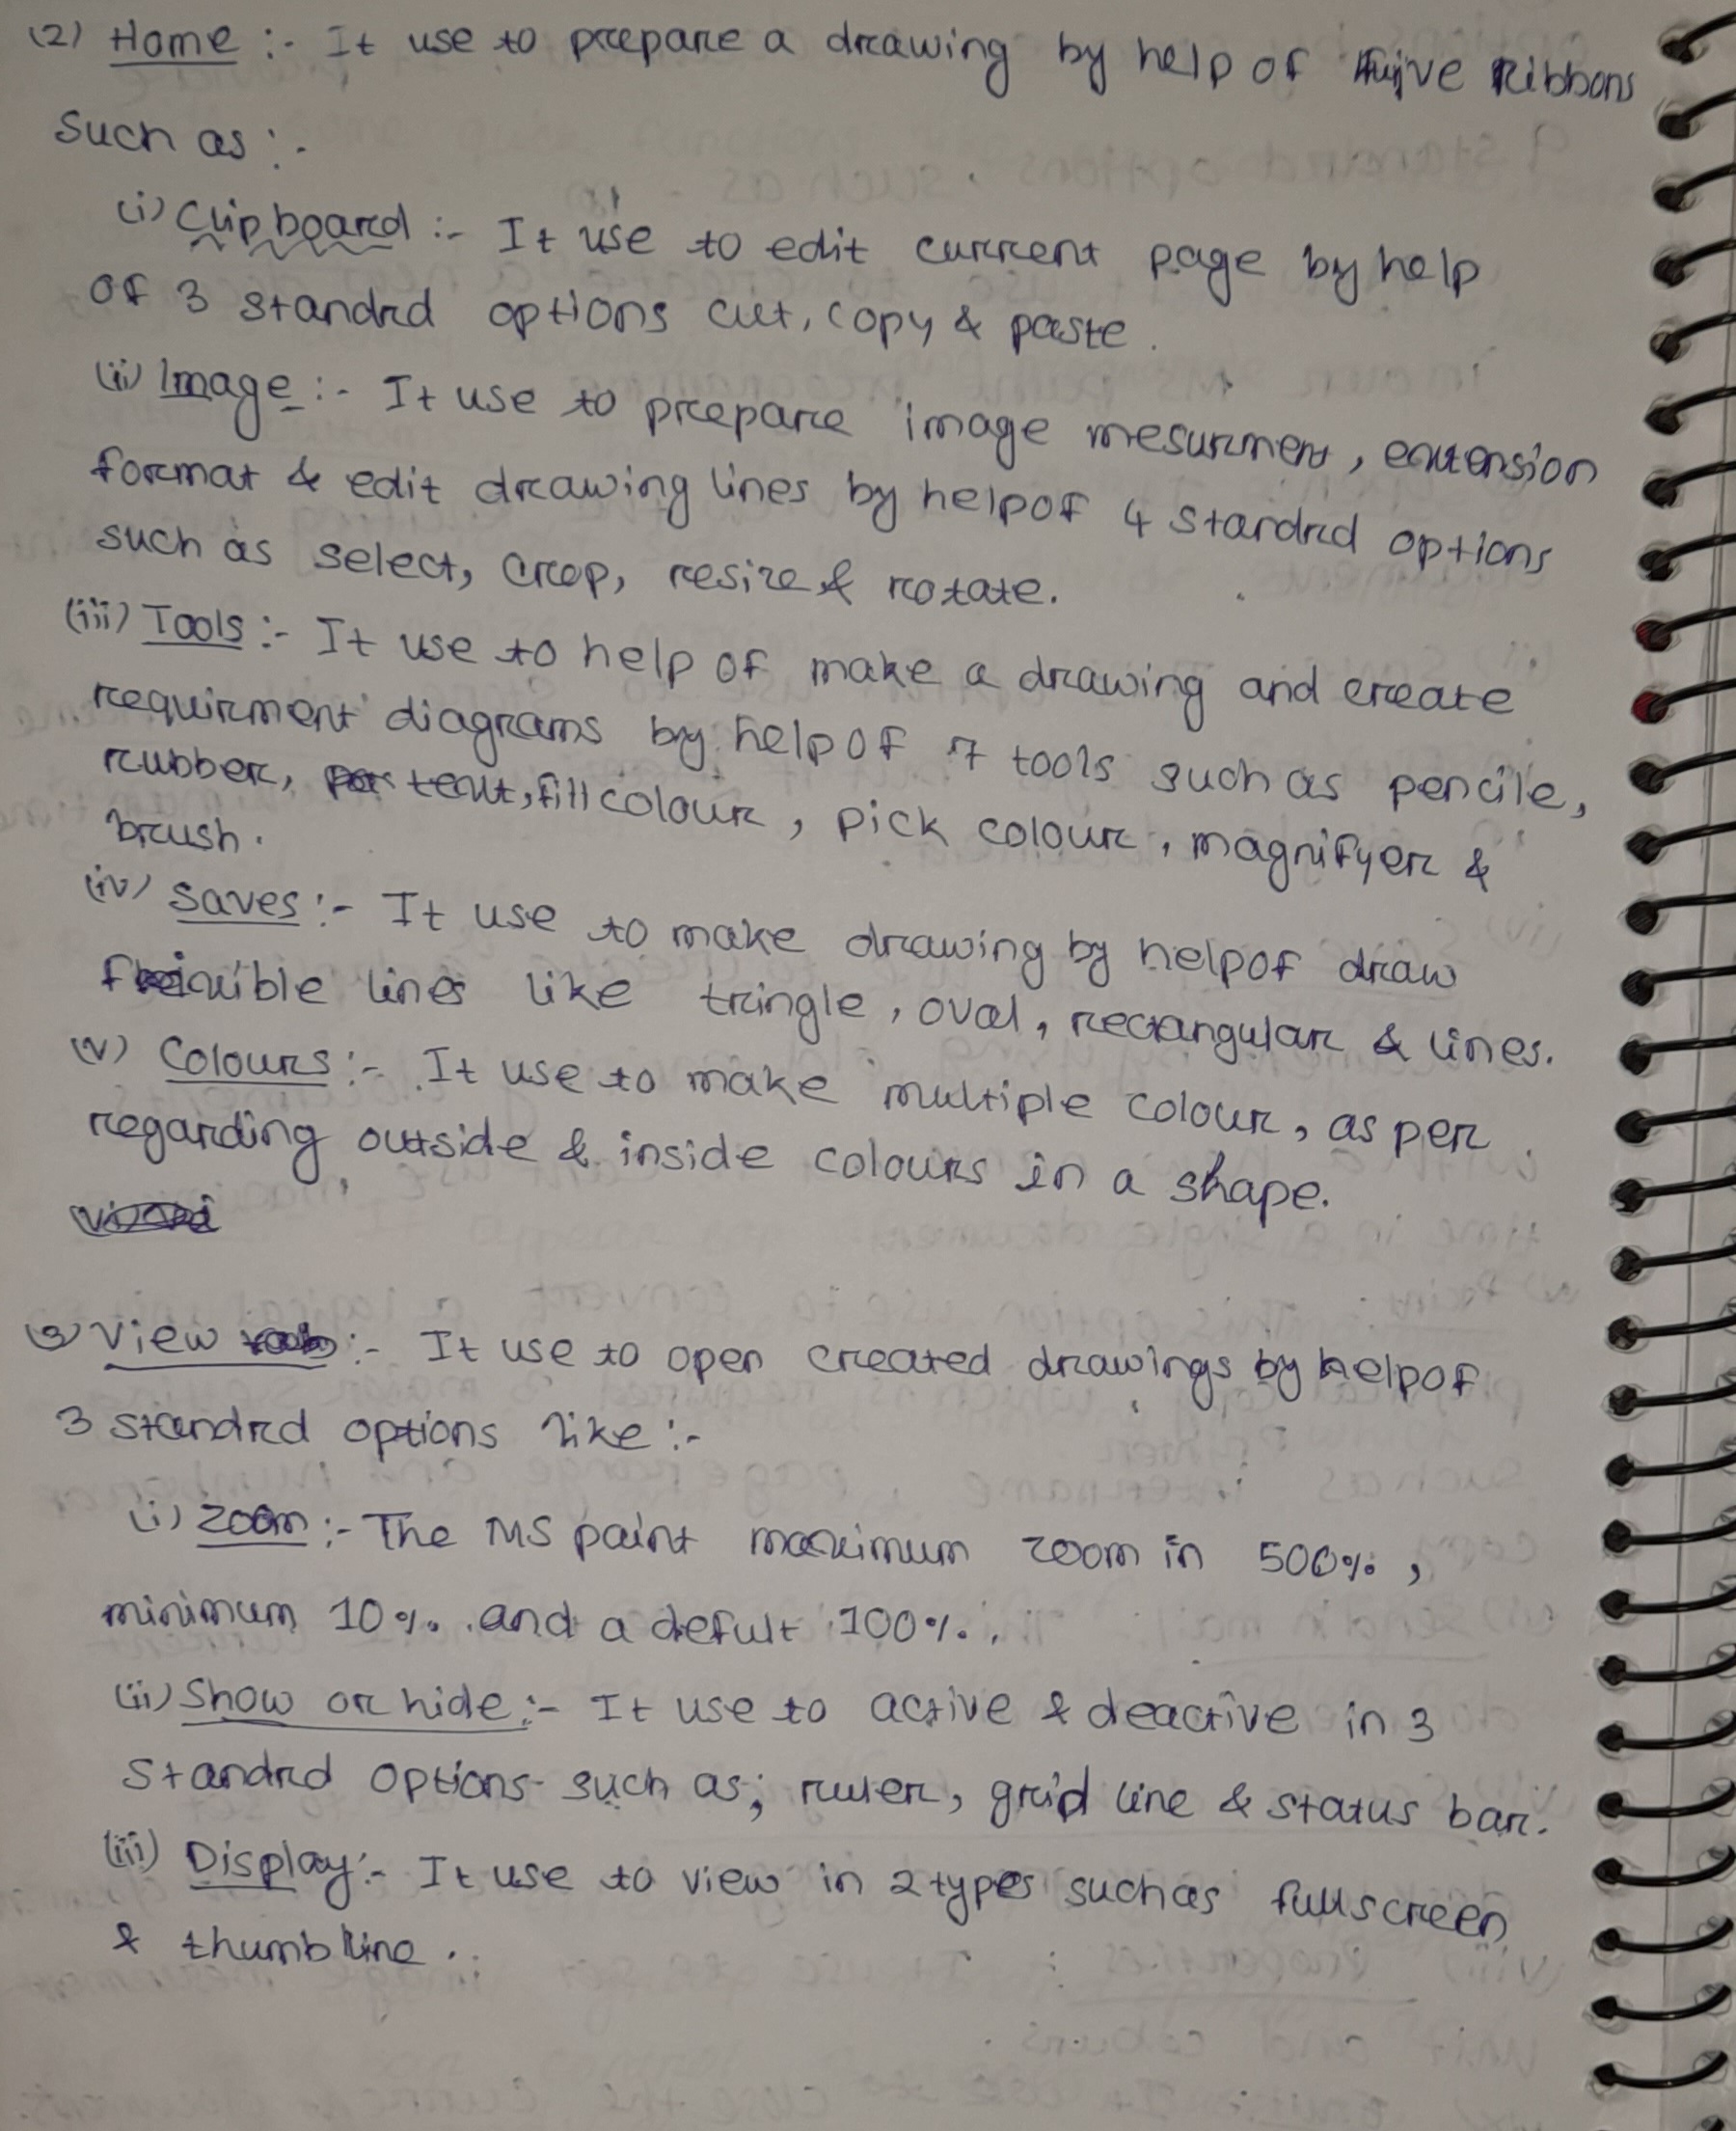 (2) Home :- It use to prepare a drawing by help of five Ribbons
such as :-
(i) Clipboard :- It use to edit current page by help
of 3 standrd options cut, copy & paste.
(ii) Image :- It use to prepare image mesurment, extension
format & edit drawing lines by help of 4 standrd options
such as select, crop, resize & rotate.
(iii) Tools :- It use to help of make a drawing and create
requirment diagrams by help of 7 tools such as pencile,
rubber, text, fill colour, pick colour, magnifyer &
brush.
(iv) Saves :- It use to make drawing by help of draw
flexible lines like tringle, oval, rectangular & lines.
(v) Colours :- It use to make multiple colour, as per
regarding outside & inside colours in a shape.
(3) View :- It use to open created drawings by help of
3 standrd options like :-
(i) Zoom :- The MS paint maximum zoom in 500%,
minimum 10%. and a defult 100%.
(ii) Show or hide :- It use to active & deactive in 3
standrd options such as; ruler, grid line & status bar.
(iii) Display :- It use to view in 2 types such as full screen
& thumb line.